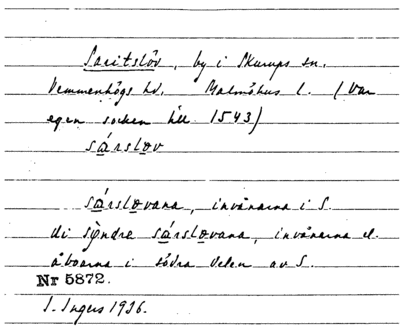 Saritslöv, by i Skurups sn.
Vemmenhögs hd. Malmöhus l. (Var
egen socken till 1543)
sárslov
sárslovana, invånarna i S
di syndre sárslovana, invånarna el.
åboarna i södra delen av S.
Nr 5872.
I. Ingers 1926.